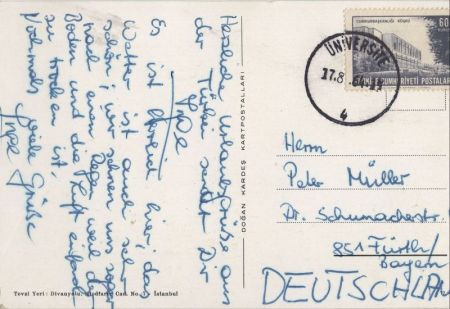 Herzliche Urlaubsgrüße aus
der Türkei sendet Dir
Inge
Es ist herrlich hier, das
Wetter ist auch sehr
schön; wir sehnen uns sogar
nach einem Regen weil der
Boden und die Luft einfach
zu trocken ist.
Nochmals viele Grüße
Inge
Tevzi Yeri: Divanyolu, Cad. No. İstanbul
DOĞAN KARDEŞ KARTPOSTALLARI
CUMHURBAŞKANLIĞI KÖŞKÜ
60
CUMHURİYETİ POSTALARI
ÜNİVERSİTE
17.8
4
Herrn
Peter Müller
Dr. Schumacherstr.
851 Fürth/
Bayern
DEUTSCHLAN